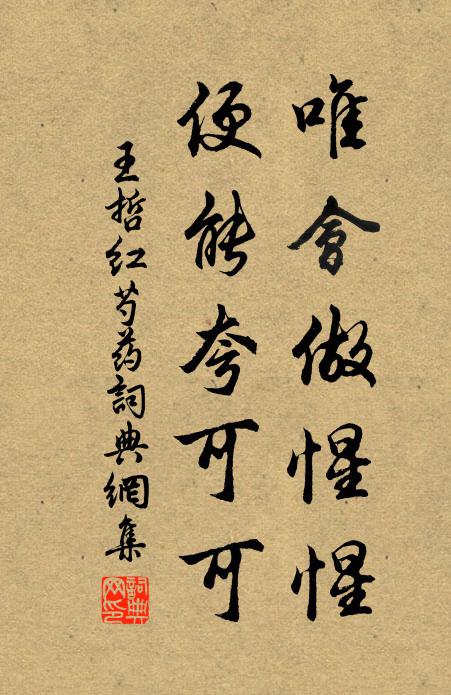 唯會做惺惺
便能夸可可
王哲红芍药詞典網集
詞典网印